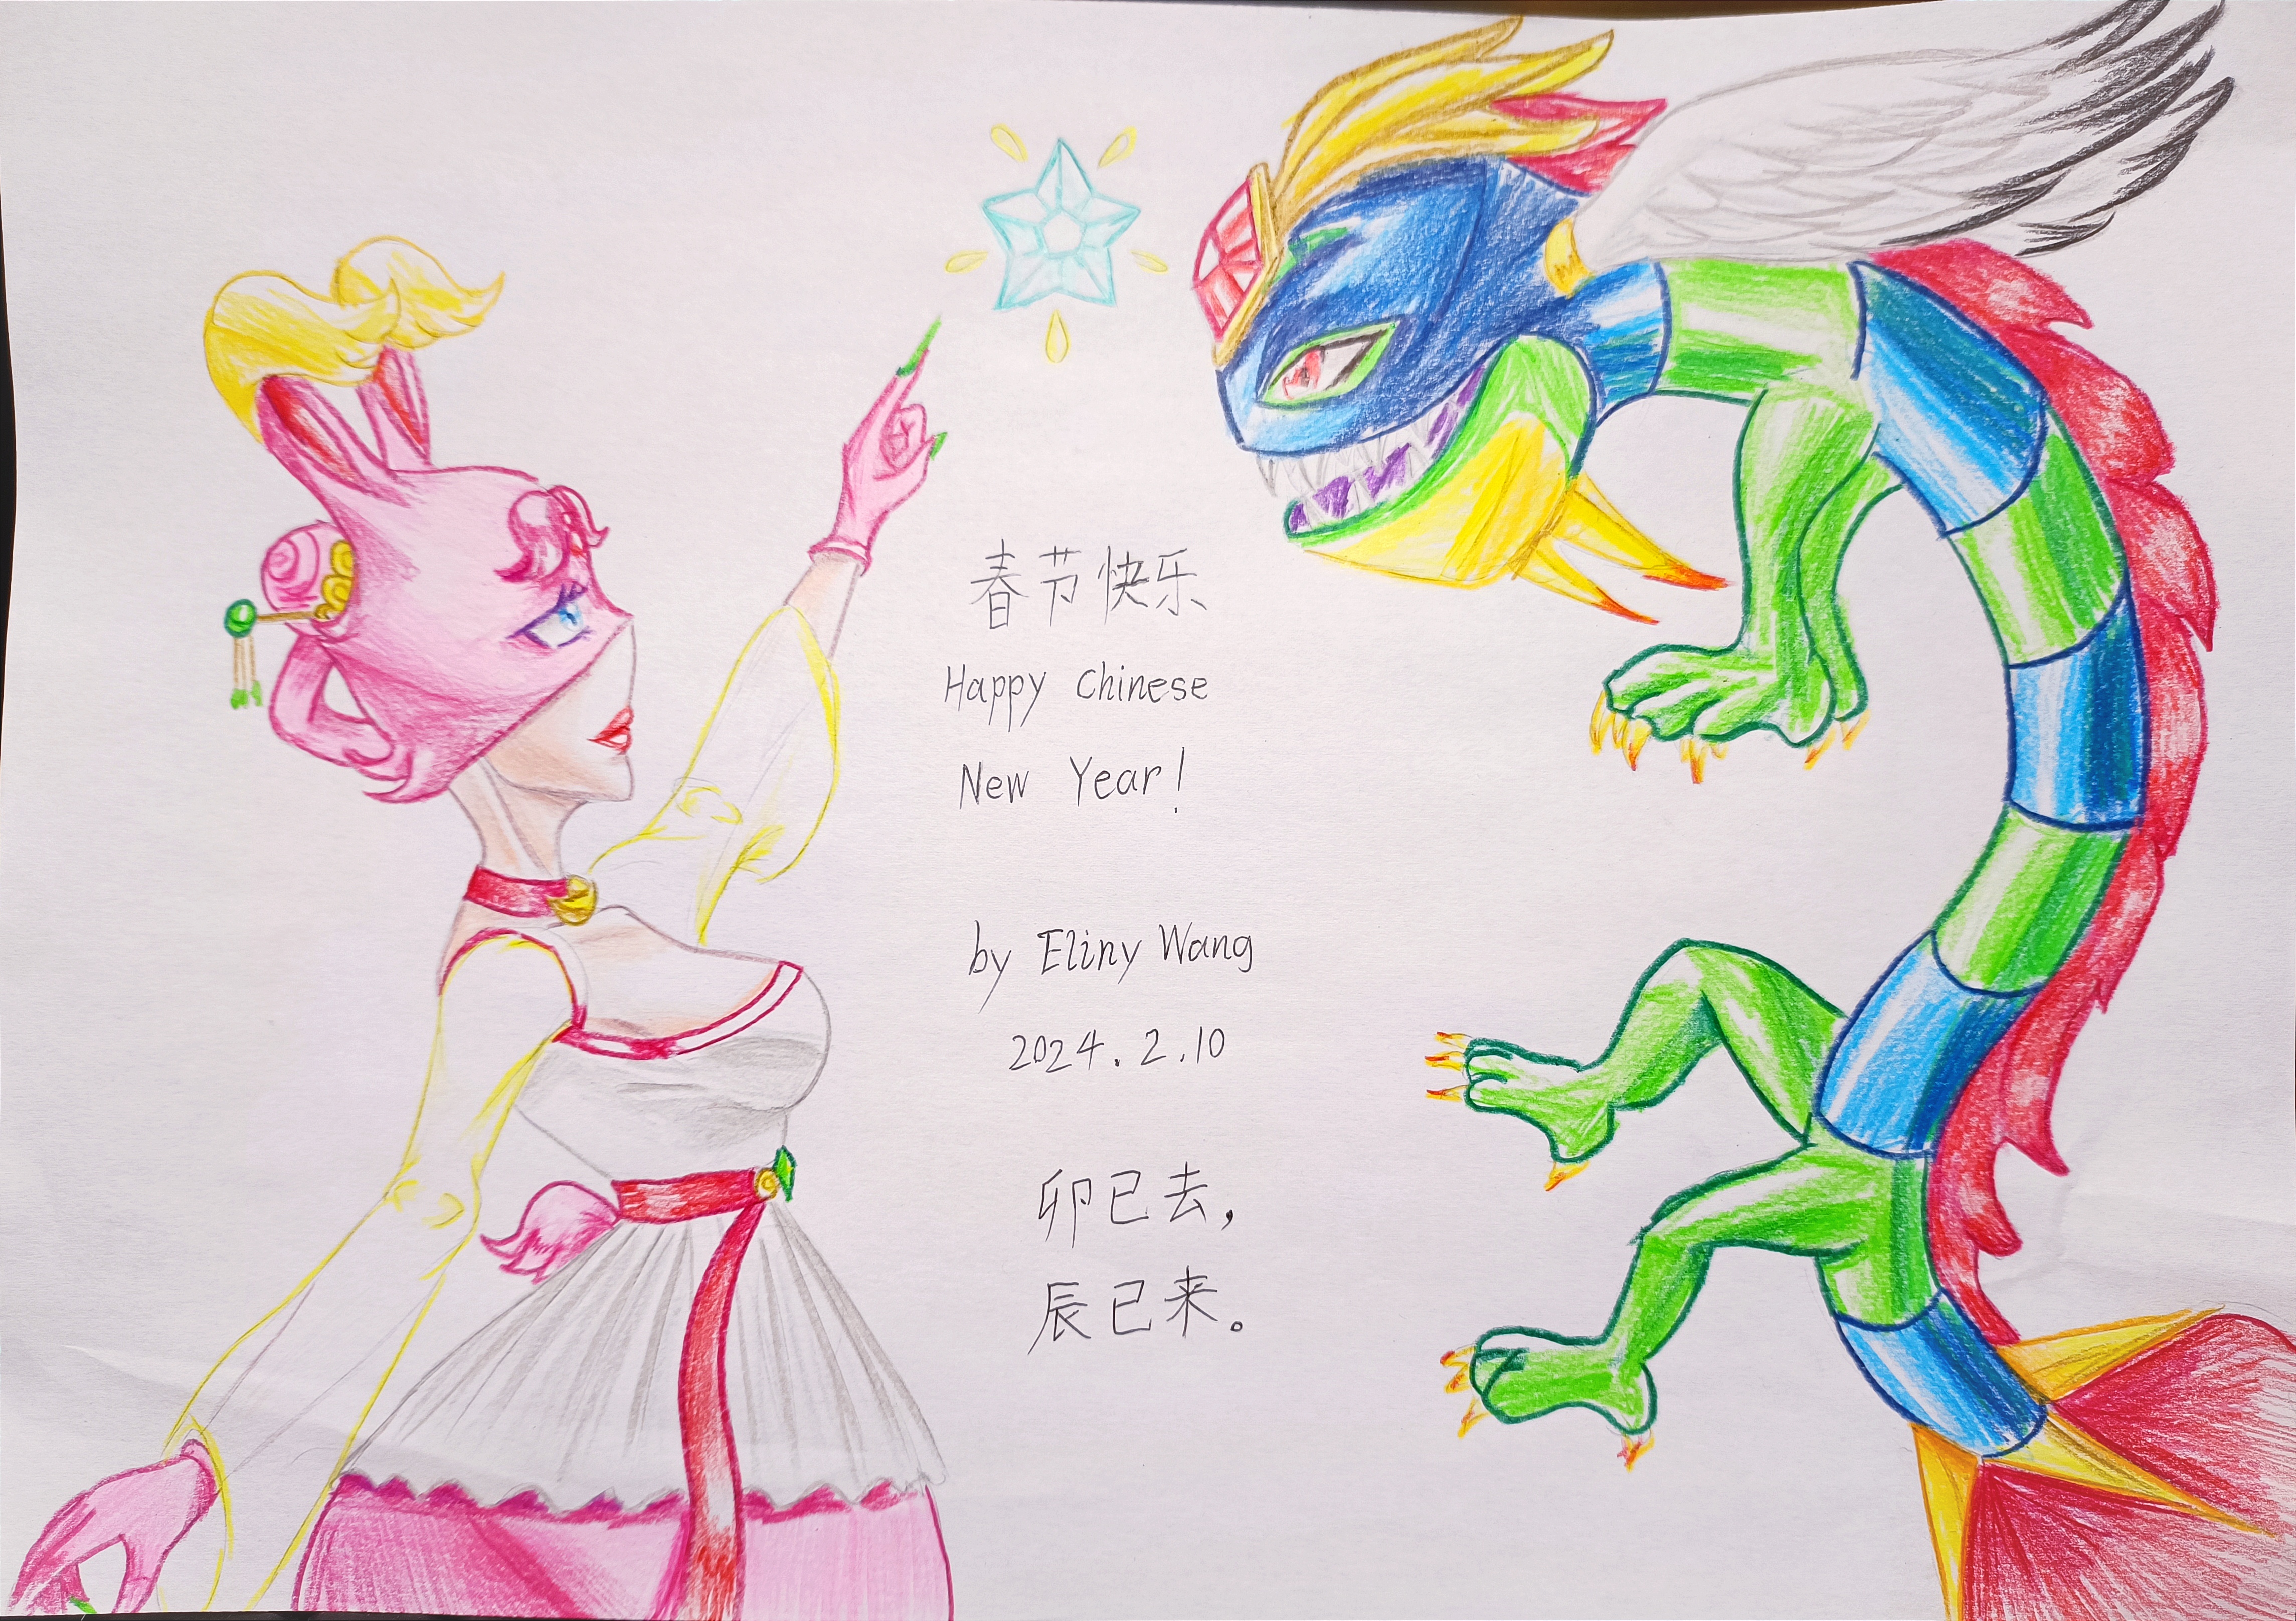 春节快乐
Happy Chinese
New Year!
by Eliny Wang
2024.2.10
卯已去，
辰已来。